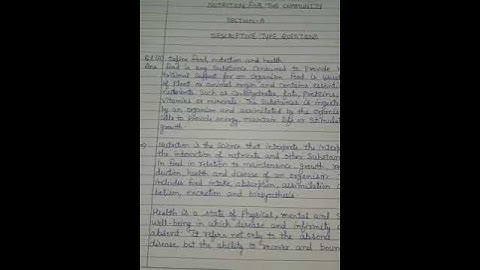 NUTRITION FOR THE COMMUNITY
SECTION-A
DESCRIPTIVE TYPE QUESTIONS
Q.1 (a) Define food, nutrition and health.
Ans Food is any substance consumed to provide
nutritional support for an organism. Food is usually
of Plant or animal origin and contains essential
nutrients. Such as carbohydrates, fats, proteins,
vitamins or minerals. The substances is ingested
by an organism and assimilated by the organism's
cells to provide energy, maintain life or stimulate
growth.
→ Nutrition is the science that interprets the
the interaction of nutrients and other substances
in food in relation to maintenance, growth,
duction health and disease of an organism.
includes food intake, absorption, assimilation,
bolism, excretion and biosynthesis.
Health is a state of Physical, mental and
well-being in which disease and infirmity
absent. It refers not only to the absend
disease, but the ability to recover and boun